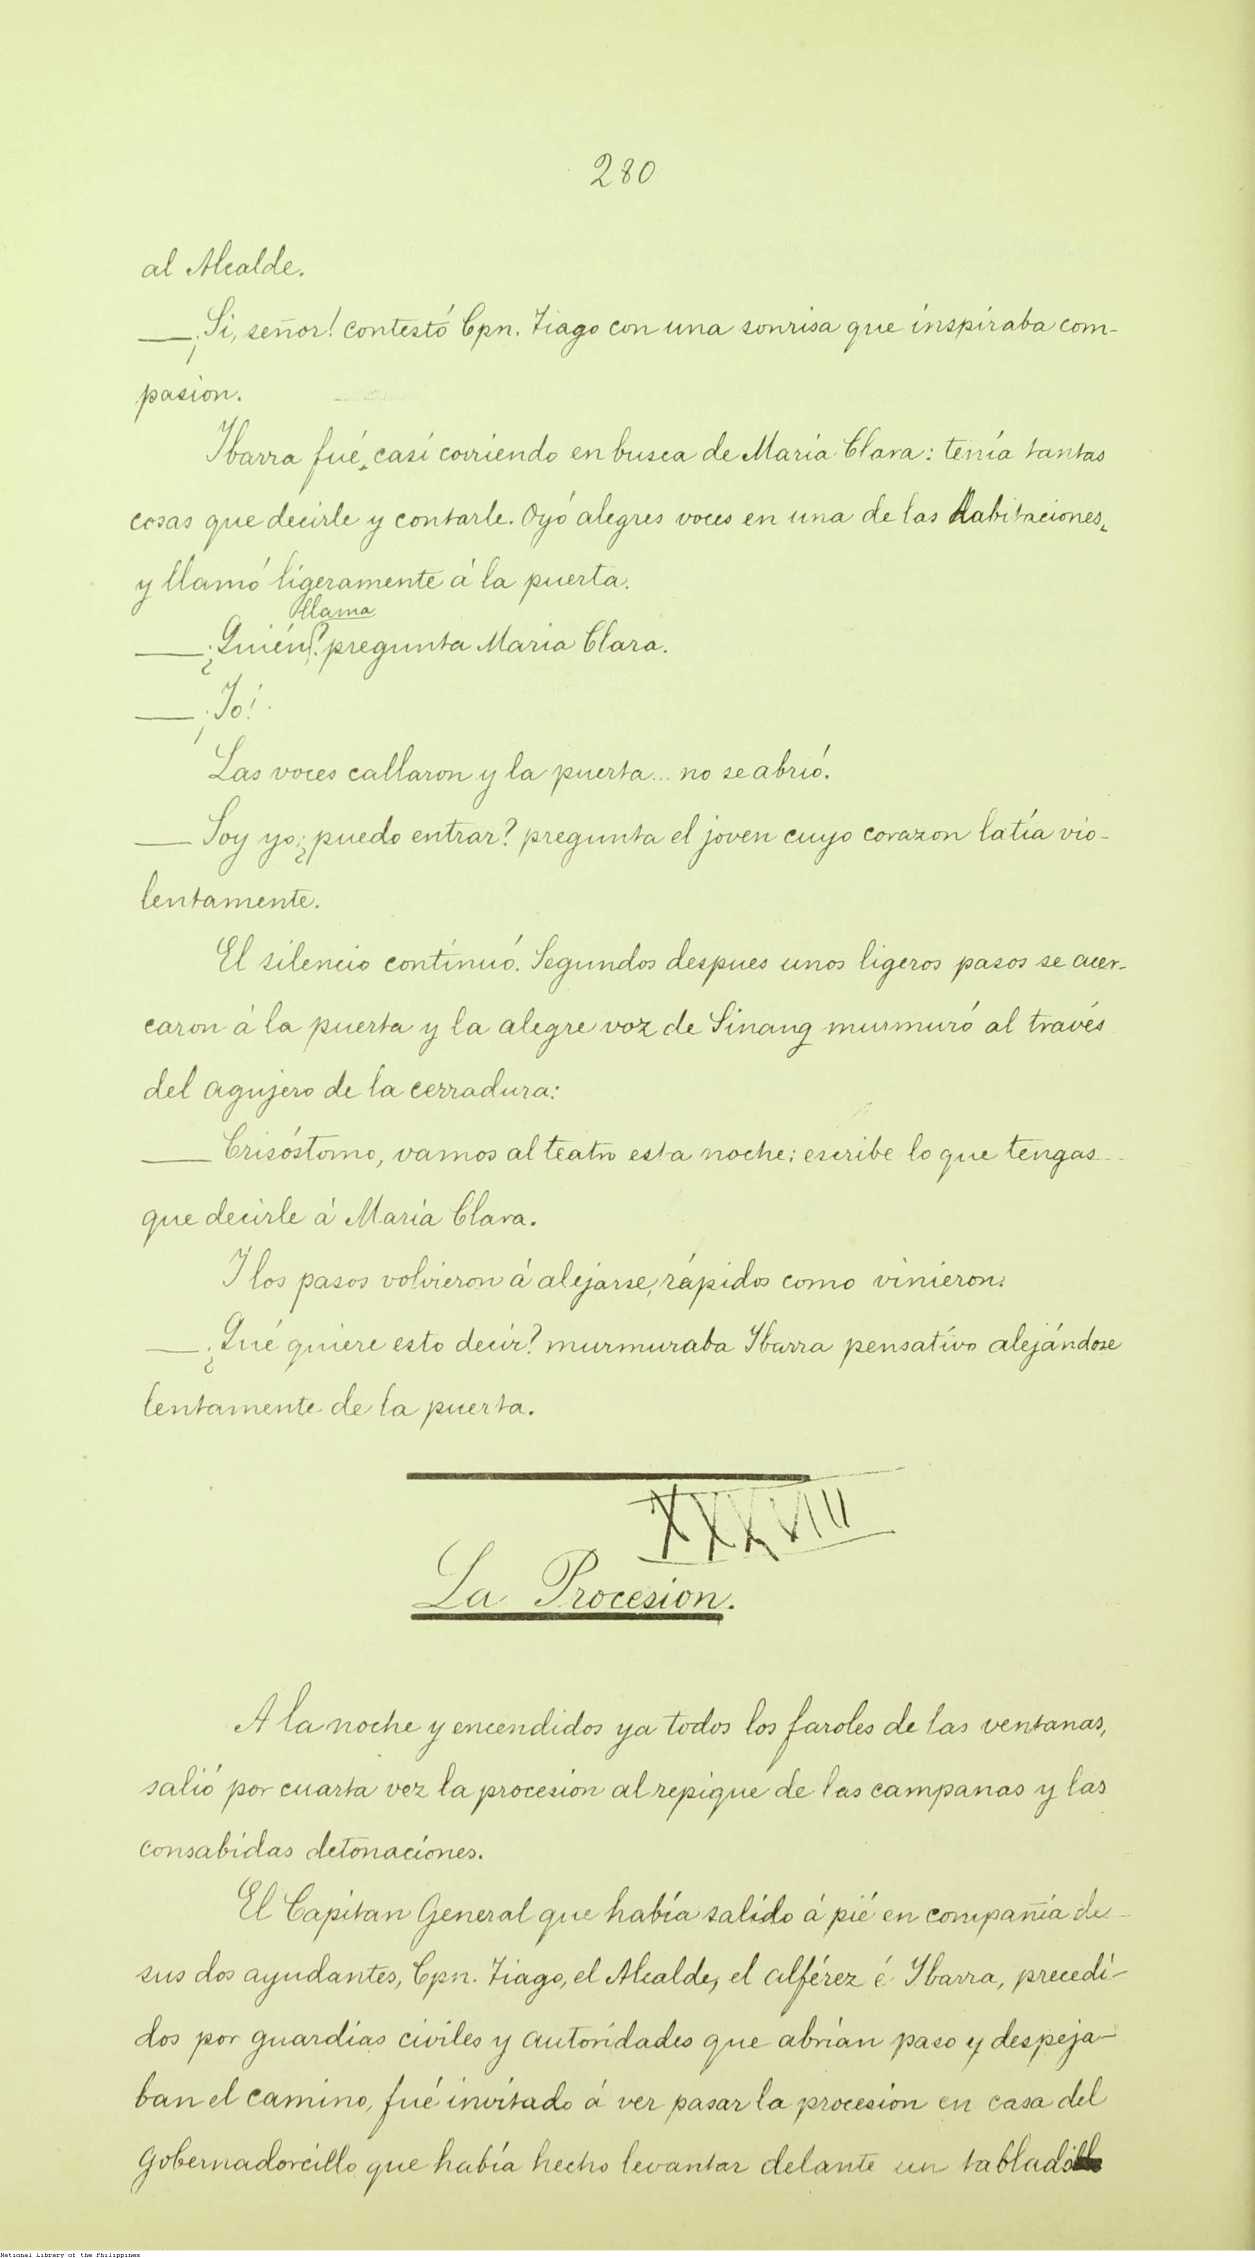 280
al Alcalde.
—¡Si, señor! contestó Cpn. Tiago con una sonrisa que inspiraba com-
pasion.
Ibarra fué, casi corriendo en busca de María Clara: tenía tantas
cosas que decirle y contarle. Oyó alegres voces en una de las habitaciones,
y llamó ligeramente á la puerta.
llama
—¿Quién? pregunta María Clara.
—¡Yo!
Las voces callaron y la puerta... no se abrió.
—Soy yo, ¿puedo entrar? pregunta el joven cuyo corazon latía vio-
lentamente.
El silencio continuó. Segundos despues unos ligeros pasos se acer-
caron á la puerta y la alegre voz de Sinang murmuró al través
del agujero de la cerradura:
—Crisóstomo, vamos al teatro esta noche; escribe lo que tengas
que decirle á María Clara.
Y los pasos volvieron á alejarse, rápidos como vinieron.
—¿Qué quiere esto decir? murmuraba Ibarra pensativo alejándose
lentamente de la puerta.
XXXVIII
La Procesion.
A la noche y encendidos ya todos los faroles de las ventanas,
salió por cuarta vez la procesion al repique de las campanas y las
consabidas detonaciones.
El Capitan General que había salido á pié en compañía de
sus dos ayudantes, Cpn. Tiago, el Alcalde, el alférez é Ibarra, precedi-
dos por guardias civiles y autoridades que abrían paso y despeja-
ban el camino, fué invitado á ver pasar la procesion en casa del
gobernadorcillo que había hecho levantar delante un tablado
National Library of the Philippines